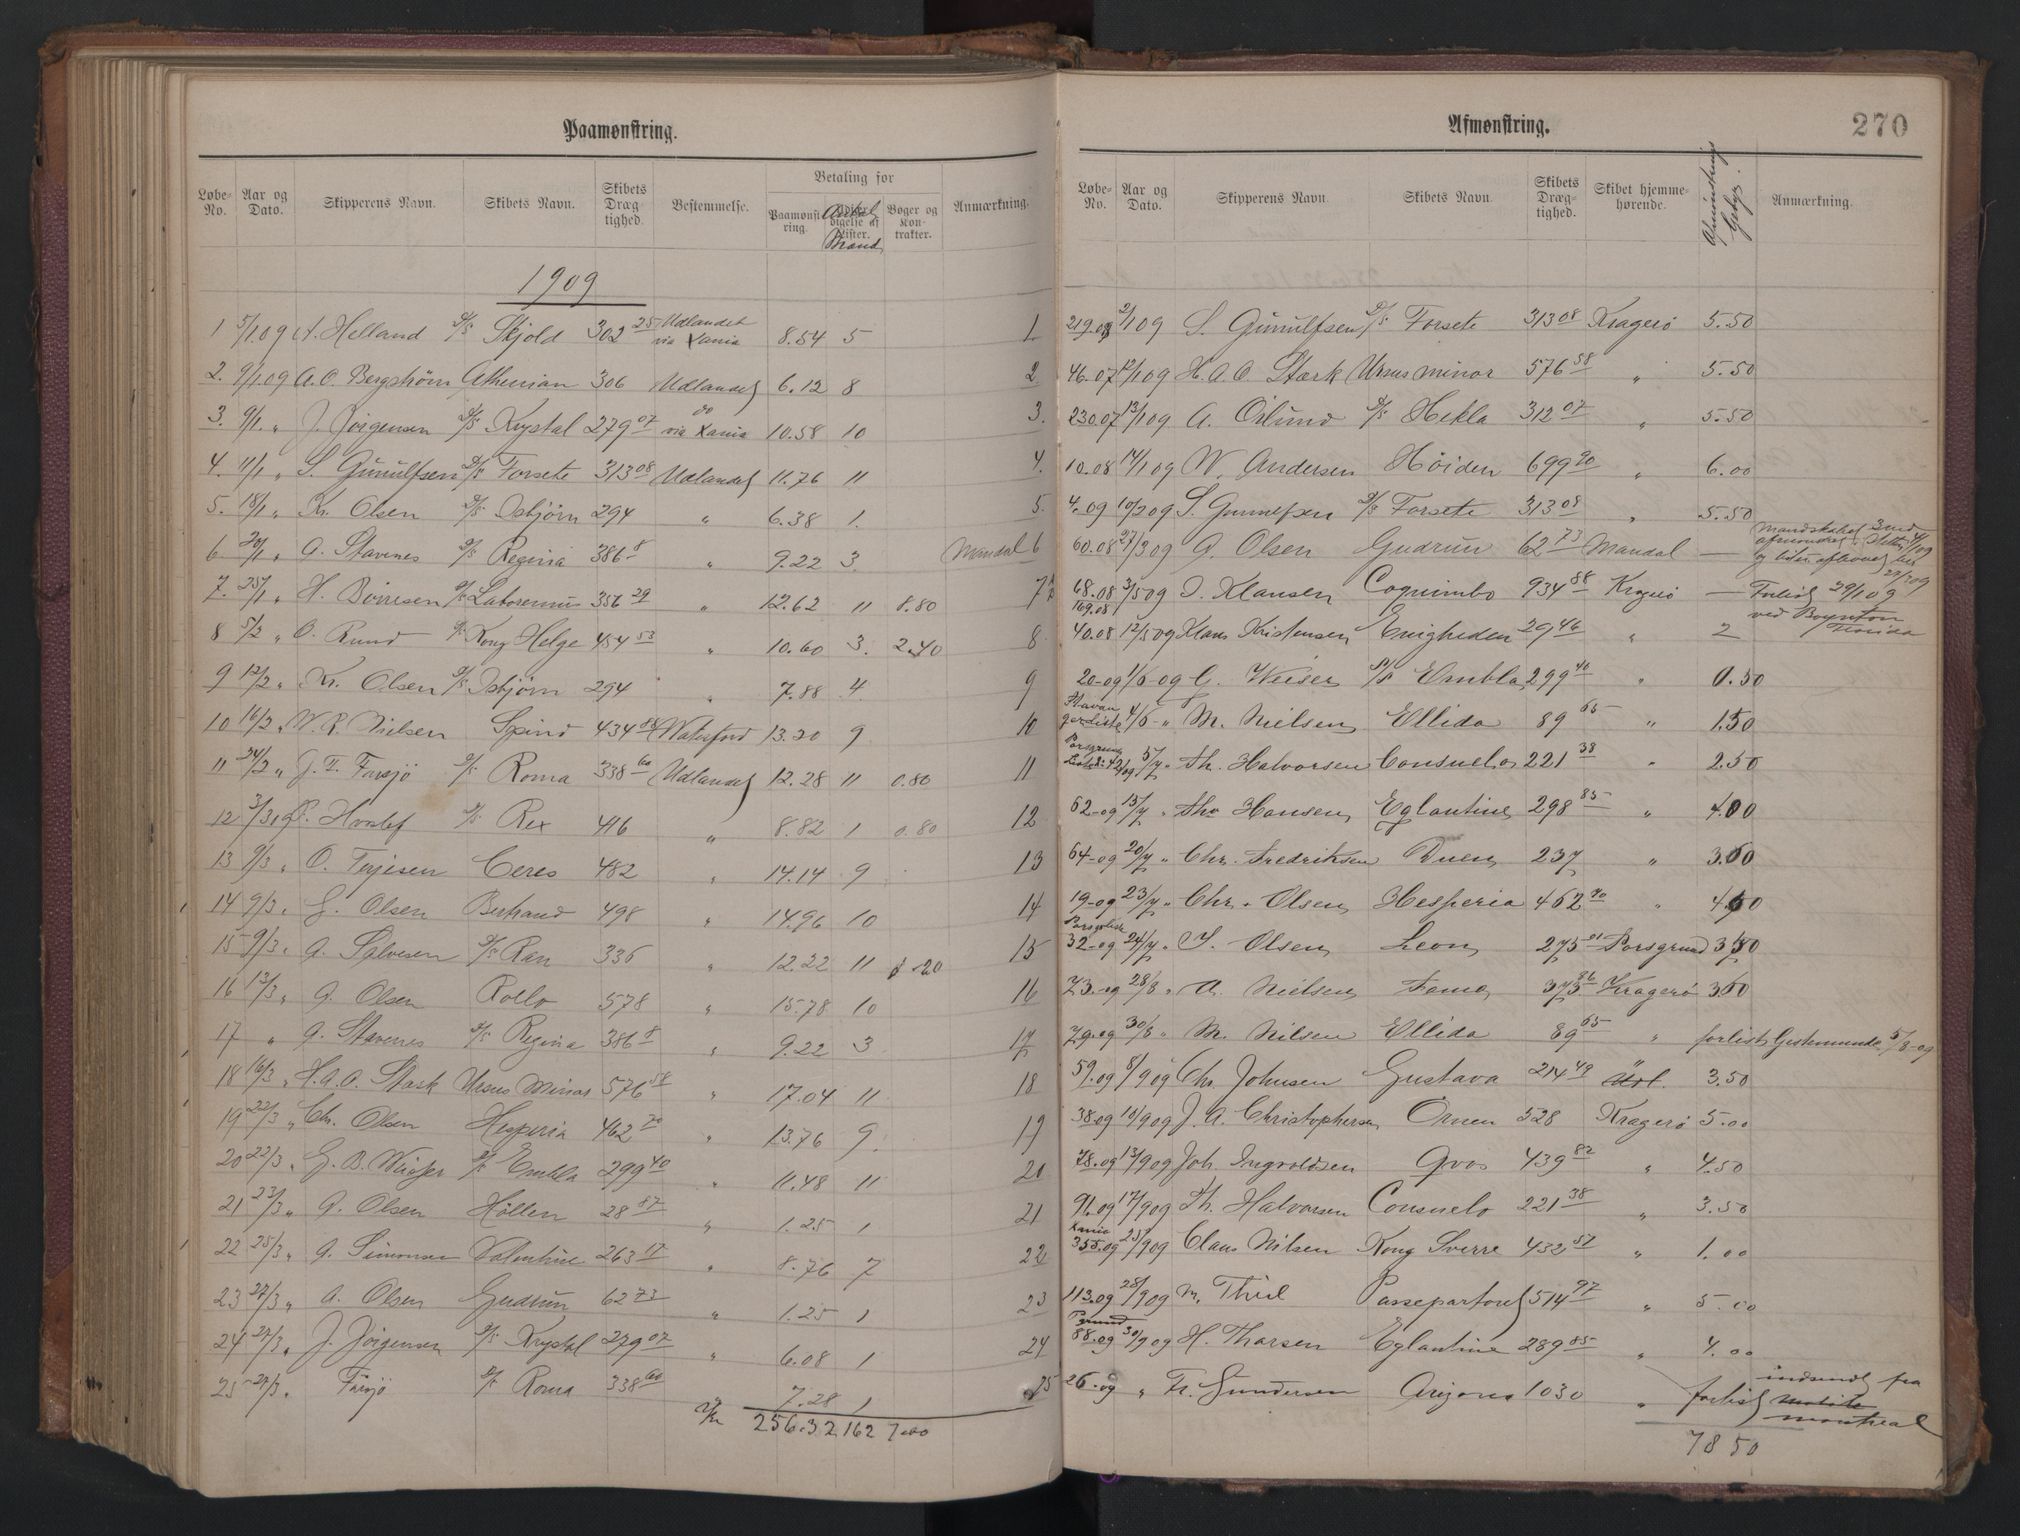 Paamønstring.
Løbe-No. Aar og Dato. Skipperens Navn. Skibets Navn. Skibets Dræg-tighed. Bestemmelse. Betaling for Paamønst-ring. Antal Mænd Bøger og Kon-trakter. Anmærkning.
1909
1 5/1 09 A. Helland D/S Skjold 302 25 Udlandet via Xania 8.54 5
2. 9/1 09 A. O. Bergstrøm Athenian 306 Udlandet 6.12 8
3. 9/1 „ J. Jørgensen D/S Krystal 279 07 do via Xania 10.58 10
4. 11/1 „ S. Gunulfsen D/S Forsete 313 08 Udlandet 11.76 11
5. 18/1 „ Kr. Olsen D/S Isbjørn 294 „ 6.38 1.
6 20/1 „ A. Stavnes D/S Regina 386 8 „ 9.22 3. Mandal
7. 25/1 „ H. Børresen D/S Laboremus 356 29 „ 12.62 11 8.80
8 5/2 „ O. Rund D/S Kong Helge 454 53 „ 10.60 3. 2.40
9 12/2 „ Kr. Olsen D/S Isbjørn 294 „ 7.88 4
10 16/2 „ N. R. Nielsen Spind 434 84 Waterford 13.20 9
11 24/2 „ J. F. Farsjø D/S Roma 338 60 Udlandet 12.28 11 0.80
12 3/3 09 Hovslef D/S Rex 416 „ 8.82 1 0.80
13 9/3 „ O. Terjesen Ceres 482 „ 14.14 9
14 9/3 „ G. Olsen Bertrand 498 „ 14.96 10
15 9/3 „ A. Salvesen D/S Ran 336 „ 12.22 11 20
16 13/3 „ A. Olsen Rollo 578 „ 15.78 10
17 „ A. Stavnes D/S Regina 386 8 „ 9.22 3
18 16/3 „ H. A. O. Stærk Ursus Minor 576 58 „ 17.04 11
19 22/3 „ Chr. Olsen Hesperia 462 70 „ 13.76 9.
20 22/3 „ G. B. D/S Embla 299 40 „ 11.48 11
21 23/3 „ A. Olsen Hollen 28 87 „ 1.25 1
22 25/3 „ A. Simonsen Valentine 263 17 „ 8.76 7
23 27/3 „ A. Olsen Gudrun 62 73 „ 1.25 1
24 27/3 „ J. Jørgensen D/S Krystal 279 07 „ 6.08 1
25 27/3 „ Farsjø D/S Roma 338 60 „ 7.28 1
256.32 162
Afmønstring. 270
Løbe-No. Aar og Dato. Skipperens Navn. Skibets Navn. Skibets Dræg-tighed. Skibet hjemme-hørende. Afmønstrings Gebyr. Anmærkning.
1 219.08 2/1 09 S. Gunulfsen D/S Forsete 313 08 Kragerø 5.50
2 46.07 12/1 09 H. A. O. Stærk Ursus minor 576 58 „ 5.50
3. 230.07 13/1 09 A. Oslund D/S Hekla 312 07 „ 5.50
4. 10.08 14/1 09 N. Andersen Höiden 699 90 „ 6.00
5. 4.09 10/2 09 S. Gunulfsen D/S Forsete 313 08 „ 5.50
6 60.08 27/3 09 A. Olsen Gudrun 62 73 Mandal —
7 68.08 169.08 3/5 09 I. Klausen Coquimbo 934 88 Kragerø — Forlist 29/1 09 ved Boynton Florida
8 40.08 12/5 09 Klaus Kristensen Enigheden 29 46 „ 2
9 20-09 1/6-09 G. Weiser D/S Embla 299 40 „ 0.50
10 Stavan gerliste 4/6- „ M. Nielsen Ellida 89 65 „ 1.50
11 Porsgrunn 5/7 „ Th. Halvorsen Consuelo 221 38 „ 2.50
12 62-09 15/7 „ Thv Hansen Eglantine 298 85 „ 4.00
13 64-09 20/7 „ Chr. Fredriksen Duen 237 „ 3.00
14 19-09 23/7 „ Chr. Olsen Hesperia 462 70 „ 4.50
15 32-09 24/7 „ Y. Olsen Leon 275 01 Porsgrund 3.50
16 73-09 28/8 „ A. Nielsen Fama 373 86 Kragerø 3.50
17 79-09 30/8 „ M. Nilsen Ellida 89 65 „ forlist Gestemunde 5/8-09
18 59.09 8/9 09 Chr. Johnsen Gustava 214 49 „ 3.50
19 38.09 10/9 09 J. A. Christophersen Örnen 528 Kragerø 5.00
20 78.09 13/9 09 Joh. Ingvoldsen Gvos 439 82 „ 4.50
21 91.09 17/9 09 Th. Halvorsen Consuelo 221 38 „ 3.50
22 Xania 355.09 25/9 09 Claus Nilsen Kong Sverre 432 51 „ 1.00
23 113.09 28/9 09 M. Thiel Passepartout 514 97 „ 5.00
24 P.grund 88.09 30/9 09 H. Tharsen Eglantine 289 85 „ 4.00
25 26-09 „ Fr. Gundersen Arizona 1030 „ forlist indsendt fra Montreal
78 50